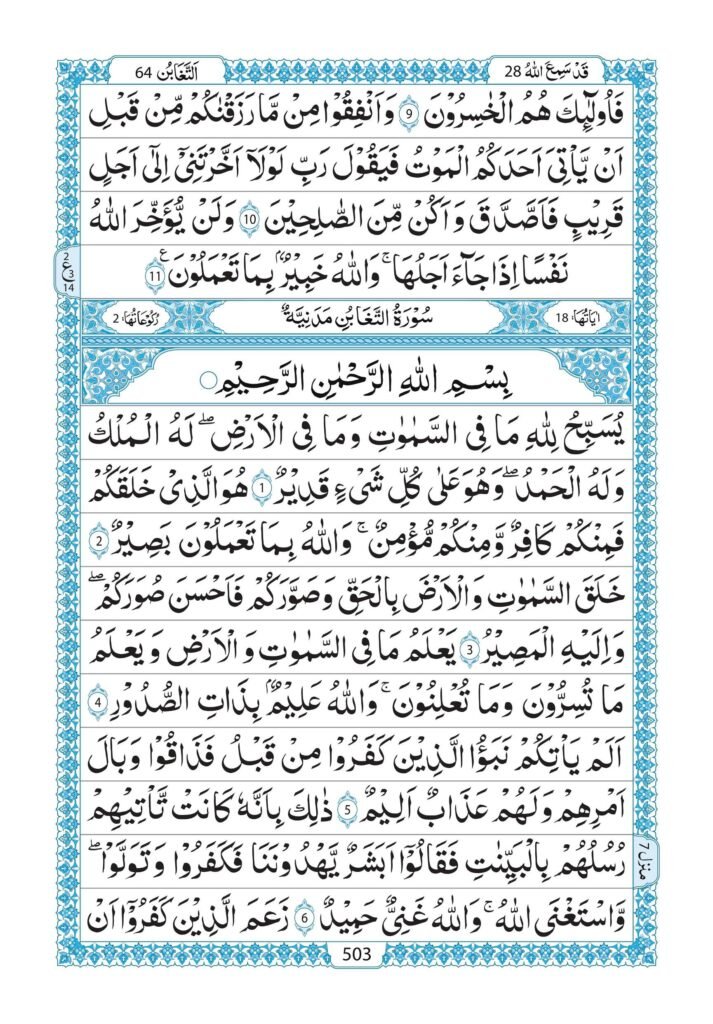 قَدْ سَمِعَ اللّٰهُ 28
اَلتَّغَابُن 64
فَاُولٰٓئِكَ هُمُ الْخٰسِرُوْنَ 9 وَاَنْفِقُوْا مِنْ مَّا رَزَقْنٰكُمْ مِّنْ قَبْلِ
اَنْ يَّاْتِىَ اَحَدَكُمُ الْمَوْتُ فَيَقُوْلَ رَبِّ لَوْلَاۤ اَخَّرْتَنِىْۤ اِلٰٓى اَجَلٍ
قَرِيْبٍ فَاَصَّدَّقَ وَاَكُنْ مِّنَ الصّٰلِحِيْنَ 10 وَلَنْ يُّؤَخِّرَ اللّٰهُ
نَفْسًا اِذَا جَآءَ اَجَلُهَا ؕ وَاللّٰهُ خَبِيْرٌۢ بِمَا تَعْمَلُوْنَ 11
2
ع
3
14
اٰيَاتُهَا: 18
سُوْرَةُ التَّغَابُنِ مَدَنِيَّةٌ
رُكُوْعَاتُهَا: 2
بِسْمِ اللّٰهِ الرَّحْمٰنِ الرَّحِيْمِ
يُسَبِّحُ لِلّٰهِ مَا فِى السَّمٰوٰتِ وَمَا فِى الْاَرْضِ ۖ لَهُ الْمُلْكُ
وَلَهُ الْحَمْدُ ۖ وَهُوَ عَلٰى كُلِّ شَىْءٍ قَدِيْرٌ 1 هُوَ الَّذِىْ خَلَقَكُمْ
فَمِنْكُمْ كَافِرٌ وَّمِنْكُمْ مُّؤْمِنٌ ؕ وَاللّٰهُ بِمَا تَعْمَلُوْنَ بَصِيْرٌ 2
خَلَقَ السَّمٰوٰتِ وَالْاَرْضَ بِالْحَقِّ وَصَوَّرَكُمْ فَاَحْسَنَ صُوَرَكُمْ ۖ
وَاِلَيْهِ الْمَصِيْرُ 3 يَعْلَمُ مَا فِى السَّمٰوٰتِ وَالْاَرْضِ وَيَعْلَمُ
مَا تُسِرُّوْنَ وَمَا تُعْلِنُوْنَ ؕ وَاللّٰهُ عَلِيْمٌۢ بِذَاتِ الصُّدُوْرِ 4
اَلَمْ يَاْتِكُمْ نَبَؤُا الَّذِيْنَ كَفَرُوْا مِنْ قَبْلُ فَذَاقُوْا وَبَالَ
اَمْرِهِمْ وَلَهُمْ عَذَابٌ اَلِيْمٌ 5 ذٰلِكَ بِاَنَّهٗ كَانَتْ تَّاْتِيْهِمْ
رُسُلُهُمْ بِالْبَيِّنٰتِ فَقَالُوْٓا اَبَشَرٌ يَّهْدُوْنَنَا فَكَفَرُوْا وَتَوَلَّوْا ۖ
وَّاسْتَغْنَى اللّٰهُ ؕ وَاللّٰهُ غَنِىٌّ حَمِيْدٌ 6 زَعَمَ الَّذِيْنَ كَفَرُوْٓا اَنْ
منزل ٧
503